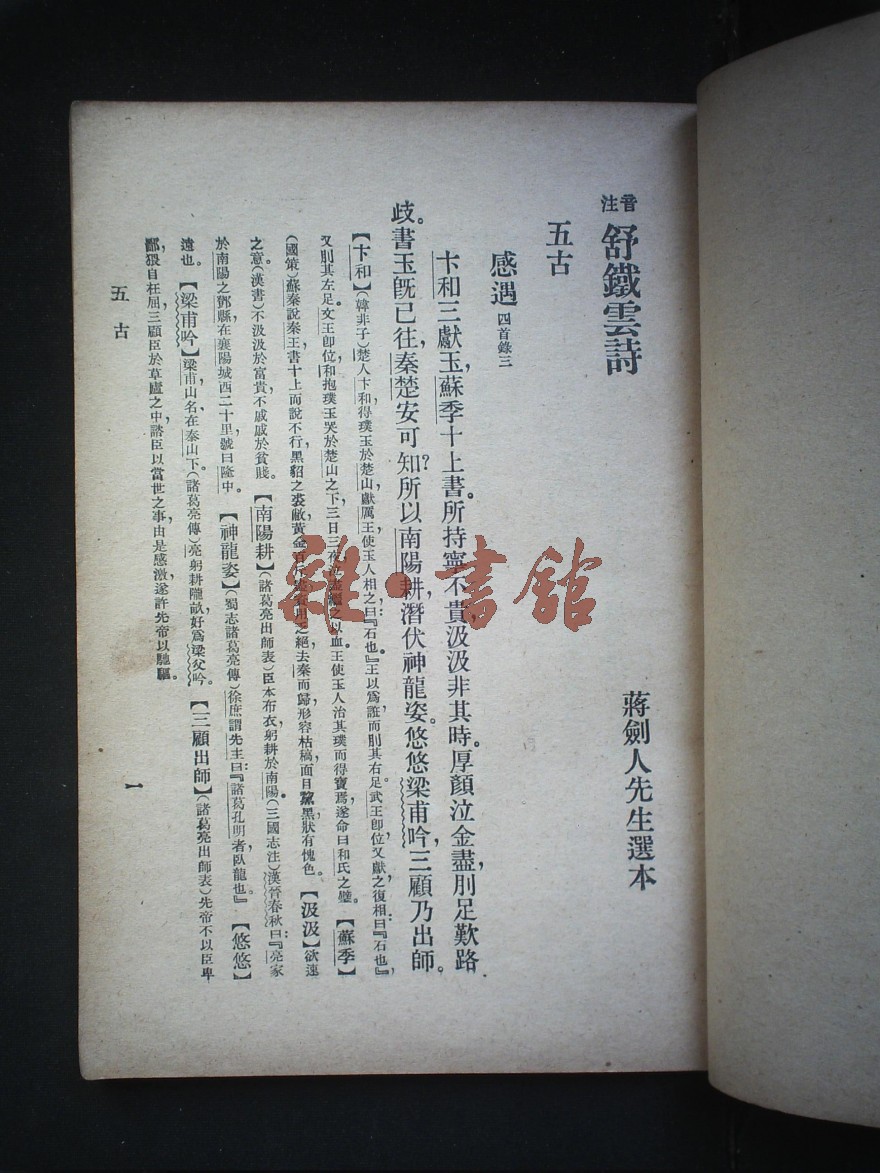 音注 舒鐵雲詩
蔣劍人先生選本
五古
感遇 四首錄三
卞和三獻玉，蘇季十上書。所持寧不貴，汲汲非其時。厚顏泣金盡，刖足歎路
歧。書玉旣已往，秦楚安可知？所以南陽耕，潛伏神龍姿。悠悠梁甫吟，三顧乃出師。
【卞和】（韓非子）楚人卞和得璞玉於楚山，獻厲王，使玉人相之，曰：『石也』王以爲誑，而刖其右足。武王卽位，又獻之，復相曰：『石也』，
又刖其左足。文王卽位，和抱璞玉哭於楚山之下，三日三夜，泣盡繼之以血。王使玉人治其璞而得寶焉，遂命曰和氏之璧。【蘇季】
（國策）蘇秦說秦王，書十上而說不行，黑貂之裘敝，黃金百斤盡，資用乏絕，去秦而歸，形容枯稿，面目黧黑，狀有愧色。【汲汲】欲速
之意（漢書）不汲汲於富貴，不戚戚於貧賤。【南陽耕】（諸葛亮出師表）臣本布衣，躬耕於南陽。（三國志注）漢晉春秋曰：『亮家
於南陽之鄧縣，在襄陽城西二十里，號曰隆中。【神龍姿】（蜀志諸葛亮傳）徐庶謂先主曰：『諸葛孔明者，臥龍也。』【悠悠】
遠也。【梁甫吟】梁甫，山名，在泰山下。（諸葛亮傳）亮躬耕隴畝，好爲梁父吟。【三顧出師】（諸葛亮出師表）先帝不以臣卑
鄙，猥自枉屈，三顧臣於草廬之中，諮臣以當世之事，由是感激，遂許先帝以驅馳。
五古
一
雜·書館